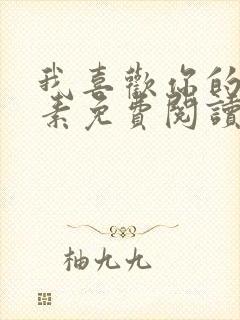 我喜歡你的
素免費閱讀
柚九九